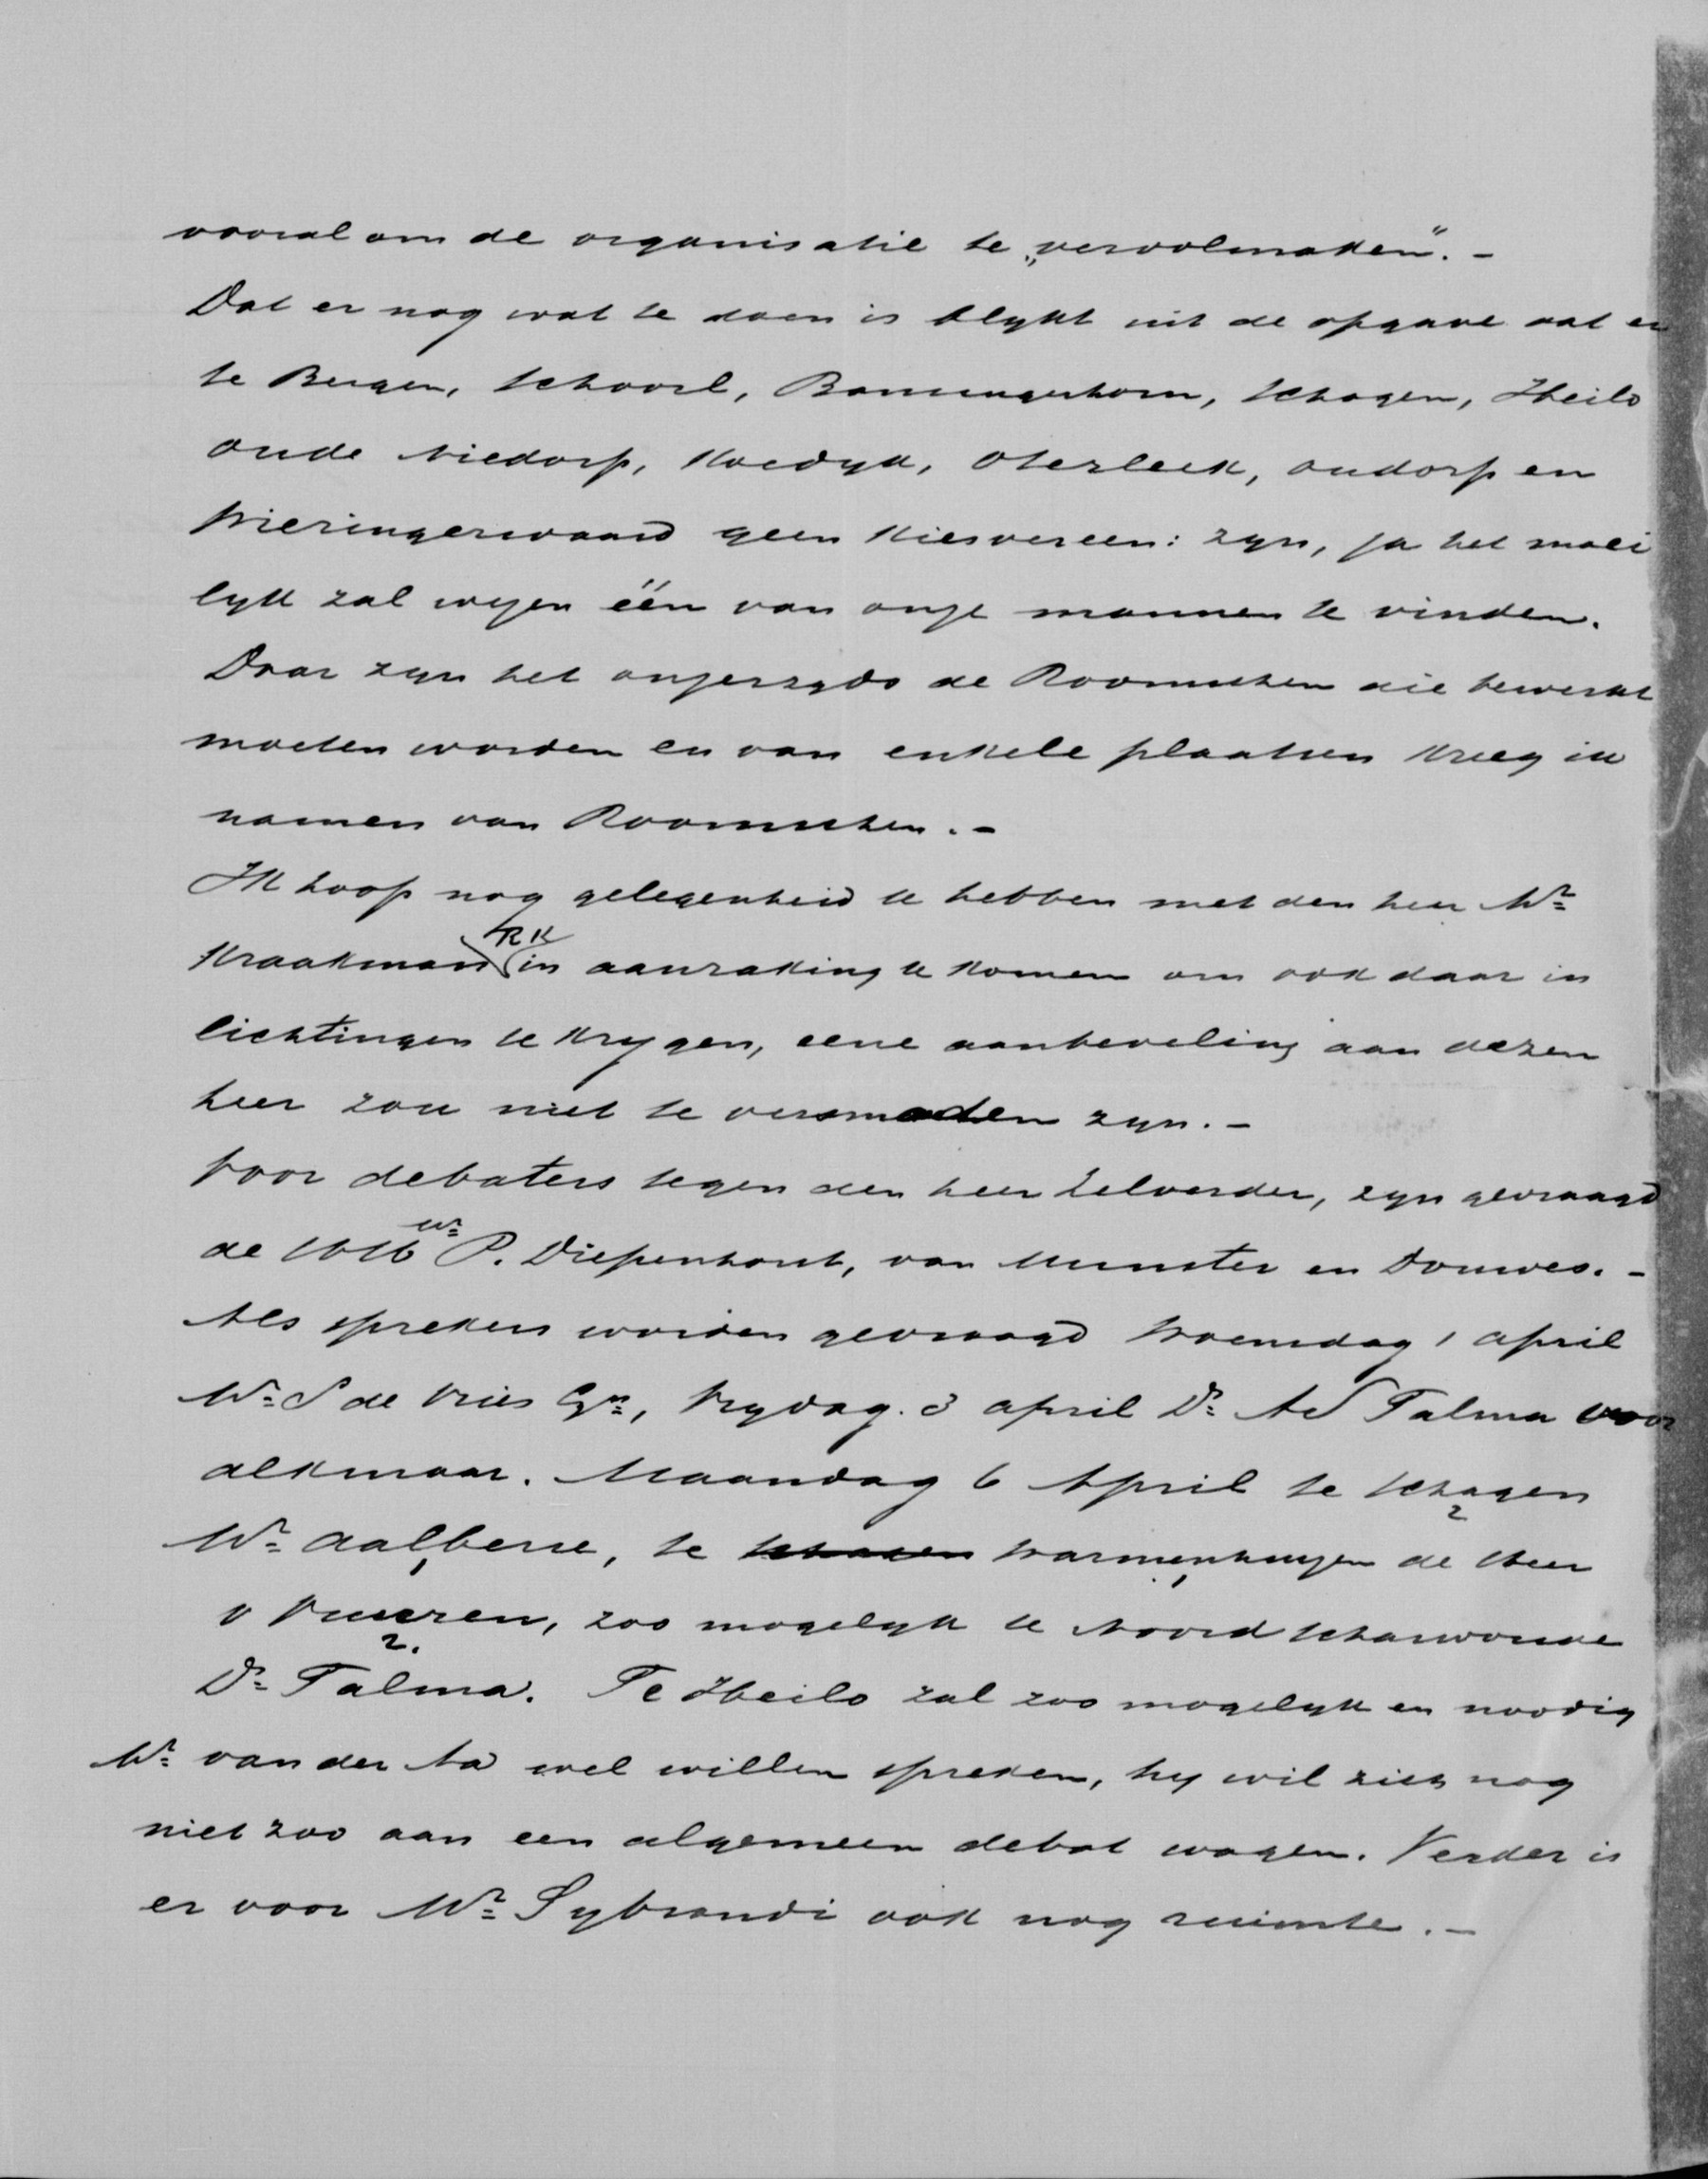 vooral om de organisatie te „vervolmaken". -
Dat er nog wat te doen is blykt uit de opgave dat er
te Bergen, Schoorl, Barsingerhorn, Schagen, Heilo
oude Niedorp, Koedyk, Oterleek, oudorp en
Wieringerwaard geen Kiesvereen: zyn, ja het moei
lyk zal wezen één van onze mannen te vinden.
Daar zyn het onzerzyds de Roomschen die bewerkt
moeten worden en van enkele plaatsen kreeg ik
namen van Roomschen. -
Ik hoop nog gelegenheid te hebben met den heer Mr
Kraakman (RK) in aanraking te komen om ook daar in
lichtingen te krygen, eene aanbeveling aan dezen
heer zou niet te versmaden zyn. -
Voor debaters tegen den heer Zelvorder, zyn gevraagd
de HH Mr P. Diepenhorst, van Munster en Douwes. -
Als sprekers worden gevraagd Woensdag 1 april
Mr S de Vries Czn, Vrydag. 3 april Ds AS Talma voor
alkmaar. Maandag 6 April te Schagen
Mr Aalberse, te Schagen Warmenhuizen de Heer
v Vuuren, zoo mogelyk te Noord Scharwoude
Ds Talma. Te Heilo zal zoo mogelyk en noodig
Mr van der Aa wel willen spreken, hy wil zich nog
niet zoo aan een algemeen debat wagen. Verder is
er voor Mr Sybrandi ook nog ruimte. -